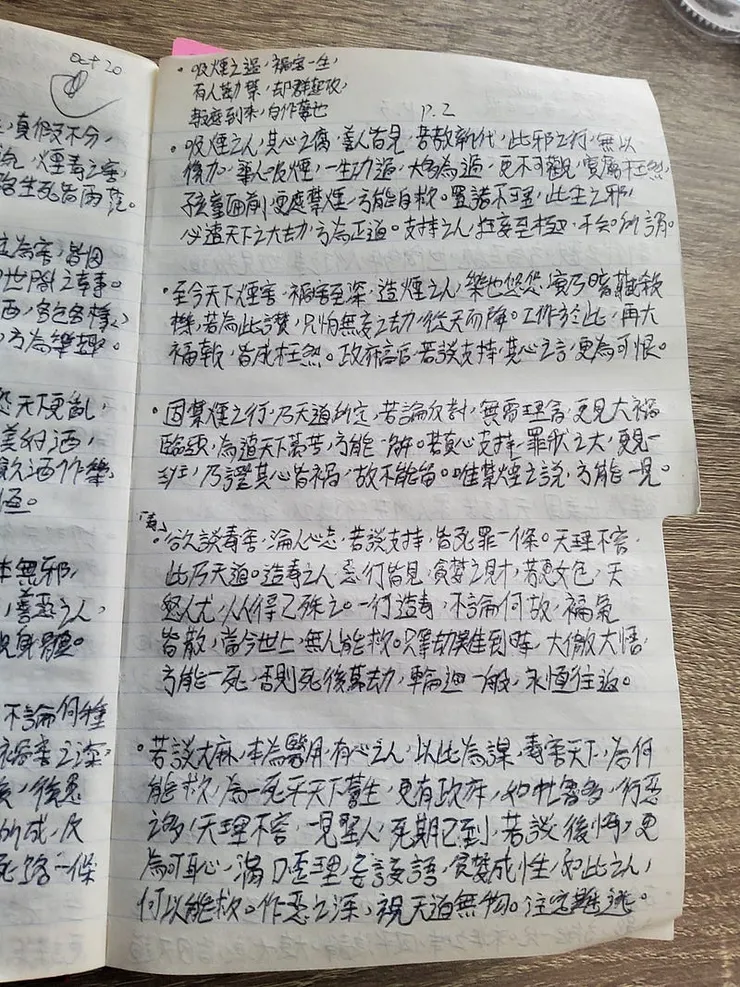 Oct 20
真假不分，
煙毒之害，
生死皆兩茫。
為害，皆因
世間之幸事。
酒，各色各樣，
方為樂趣。
天下更亂，
美付酒，
飲酒作樂，
恆。
本無邪，
善惡之人，
視身體。
不論何種
禍害之深
後患
所成，反
死路一條
• 吸煙之過，禍害一生，
有人勸禁，却群起攻，
報應到來，自作孽也
P. 2
• 吸煙之人，其心之腐，善人皆見，若教新代，此邪之行，無以
復加，華人吸煙，一生功過，大多為過，更不可觀，實屬枉然，
孩童面前，更應禁煙，方能自救。置諸不理，此生之邪，
心遠天下之大劫，方為正道。支持之人，狂妄至極，不会所謂。
• 至今天下煙害，禍害至深，造煙之人，樂也悠悠，實乃暗藏殺
機，若為此讚，只怕無妄之劫，從天而降。工作於此，再大
福報，皆成枉然。政府官居，若談支持，其心之言，更為可恨。
• 因禁煙之行，乃天道所定，若論反對，無需理會，更見大禍
臨頭，為遺天下萬苦，方能一解。若真心支持，罪狀之大，更見一
斑，乃證其心皆禍，故不能留。唯禁煙之說，方能一見。
「毒」
• 欲談毒害，論人心志，若談支持，皆死罪一條。天理不容，
此乃天道。造毒之人，惡行皆見，貪婪之財，若惡文包，天
怒人尤，人人得而殊之。一行造毒，不論何故，福氣
皆散，當今世上，無人能救。只等劫難到時，大徹大悟，
方能一死，否則死後萬劫，輪迴一般，永恆往返。
• 若談大麻，本為醫用，有心之人，以此為謀，毒害天下，為何
能救，為一死乎天下蒼生，更有政府，如此害多，行惡
之多，天理不容，一見聖人，死期已到，若談後悔，更
為可恥，滿口歪理，妄談妄語，貪婪成性，如此之人，
何以能救。作惡之深，視天道無物。注定難逃。